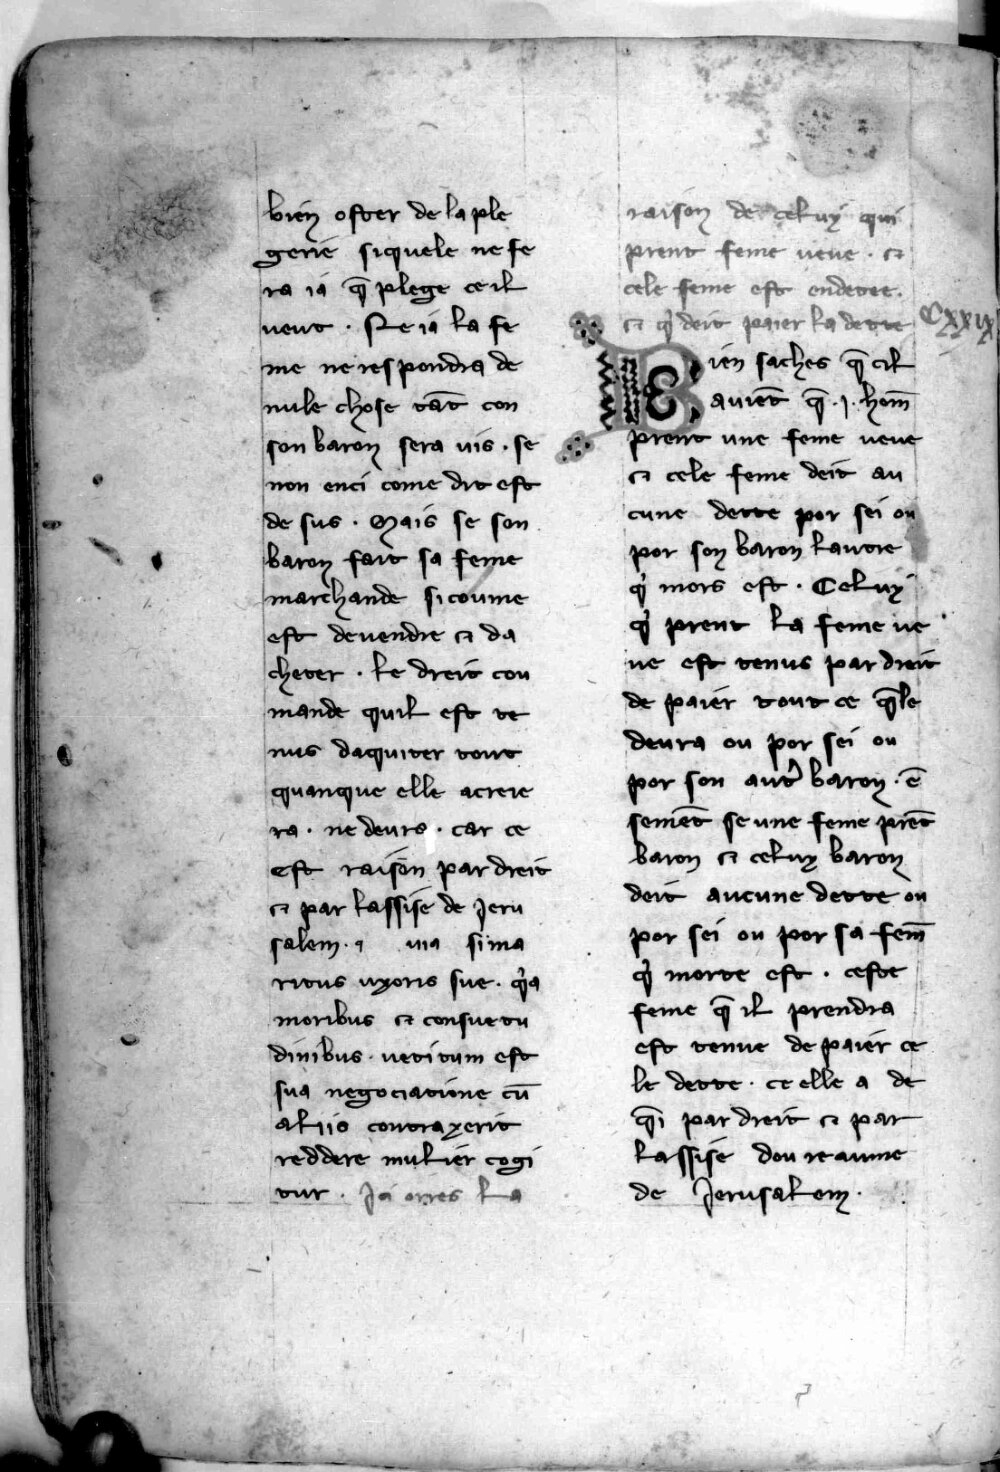 bien oster de la ple
gerie siquele ne fe
ra ia q̄ plege ce il
veut . Ne ia la fe
me ne respondra de
nule chose tāt con
son baron sera uis . se
non enci come dit est
de sus . Mais se son
baron fait sa feme
marchande si coume
est de vendre ⁊ da
cheter . le dreit cou
mande quil est te
nus daquiter tout
quanque elle acreire
ra . ne deura . car ce
est raison par dreit
⁊ par lassise de Jeru
salem . uia si ma
ritus uxoris sue . qia
moribus ⁊ consuetu
dinibus . uetitum est
sua negociatione cū
aliis contraxerit
reddere mulier cogi
tur . Ja orres la
raison de celuy qui
prent feme veue . ⁊
cele feme est endetee .
⁊ qi deit paier la dette
Cxxix
Bien saches q̄ cil
auiēt q̄ .j. hom̄
prent une feme veue
⁊ cele feme deit au
cune dette por sei ou
por son baron lautre
qi mors est . Celuy
qi prent la feme ve
ue est tenus par dreit
de paier tout ce q̄le
deura ou por sei ou
por son autr baron . ē
semēt se une feme prēt
baron ⁊ celuy baron
deit aucune dette ou
por sei ou por sa fem̄
qi morte est . ceste
feme q̄ il prendra
est tenue de paier ce
le dette . ce elle a de
q̄i par dreit ⁊ par
lassise dou reaume
de Jerusalem .